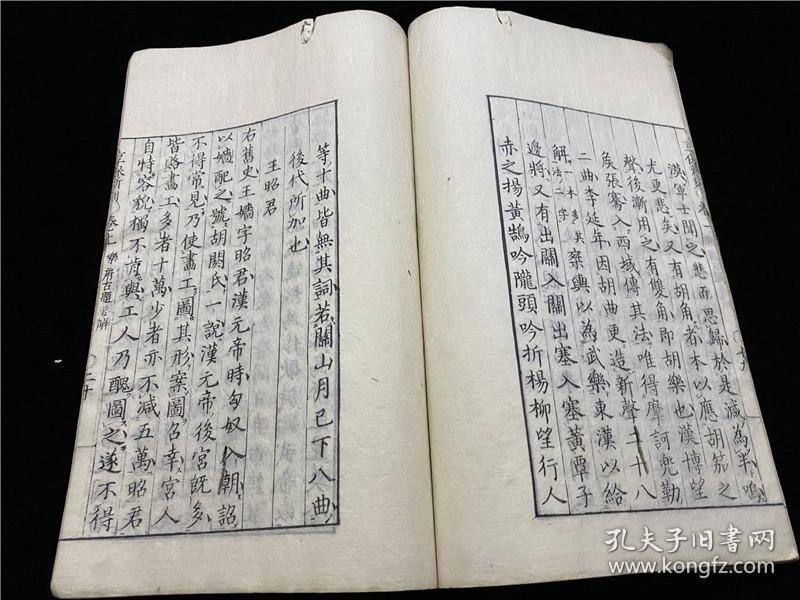 漢軍士聞之悲而思歸於是減為半鳴
尤更悲矣又有胡角者本以應胡笳之
聲後漸用之有雙角即胡樂也漢博望
矦張騫入西域傳其法唯得摩訶兜勒
二曲李延年因胡曲更造新聲二十八
解一本多其法二字乘輿以為武樂東漢以給
邊將又有出關入關出塞入塞黃覃子
赤之揚黃鵠吟隴頭吟折楊柳望行人
等十曲皆無其詞若關山月已下八曲
後代所加也
王昭君
右舊史王嬙字昭君漢元帝時匈奴入朝詔
以嬙配之號胡閼氏一說漢元帝後宮既多
不得常見乃使畫工圖其形案圖召幸宮人
皆賂畫工多者十萬少者亦不減五萬昭君
自恃容貌獨不肯與工人乃醜圖之遂不得
樂府古題要解
二十
孔夫子旧书网
www.kongfz.com